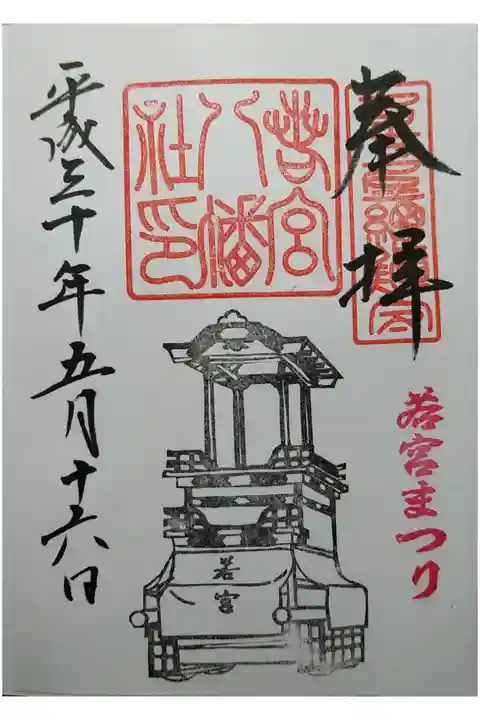 奉拝
若宮まつり
若宮
八幡
社印
若宮
平成三十年五月十六日